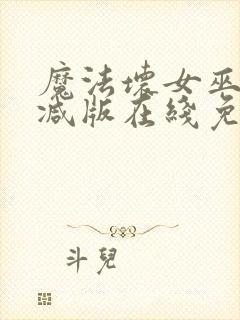 魔法壞女巫
減版在綫免
斗兒